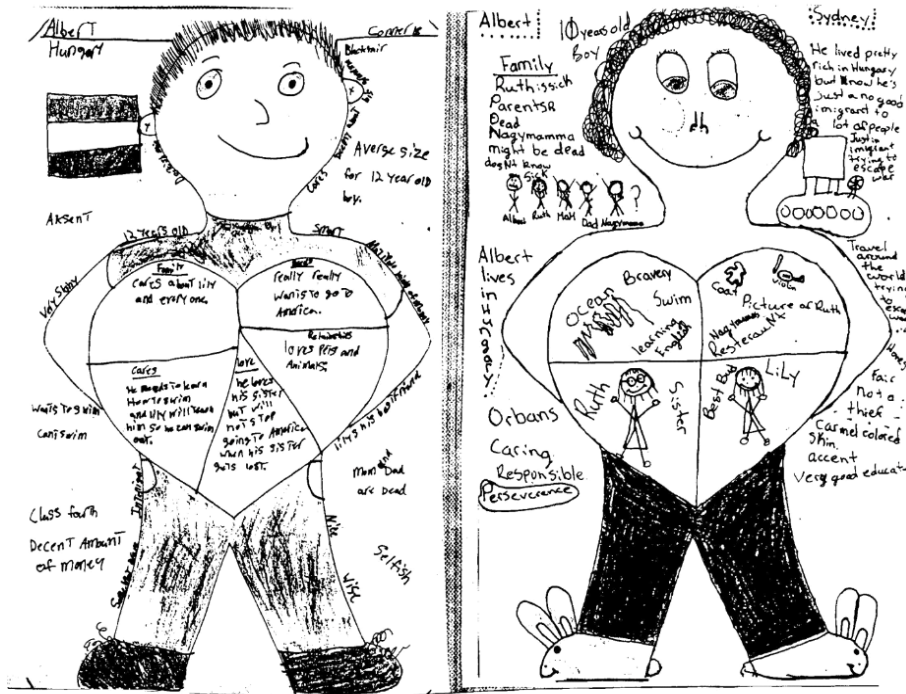 Albert
Connerk
Hungary
Black hair
Averse size
for 12 year old
boy.
Aksent
12 years old
Smart
Very Skiny
Family
Cares about lily
and everyone.
really really
wants to go to
America.
loves Pets and
Animals
Cares
He needs to learn
How to swim
and lily will teach
him so he can swim
out.
love
he loves
his sister
but will
not stop
going to America
when his sister
gets lost.
Wants to swim
Cant swim
lilys his best friend
Mom and Dad
are Dead
Class forth
Decent Amount
of money
Nice
Wise
Selfish
Albert
10 years old
Boy
Sydney
Family
Ruth is sick
Parents R
Dead
Nagymamma
might be dead
dosNt know
Sick
Albert Ruth Mom Dad Nagymama ?
He lived pretty
rich in Hungary
but know he's
just a no good
imigrant to
a lot of people
Just in
imigrant
trying to
escape
war
Travel
around
the
world
trying
to
escape
war
Albert
lives
in
Ocean
Bravery
Swim
learning
English
Coat
Violin
Picture of Ruth
Nagymamas
Resteraunt
Ruth
Sister
Best Bud
LiLy
Orbans
Caring
Responsible
Perseverance
Hones
Fair
not a
thief
Carmel colored
skin
accent
Very good educat